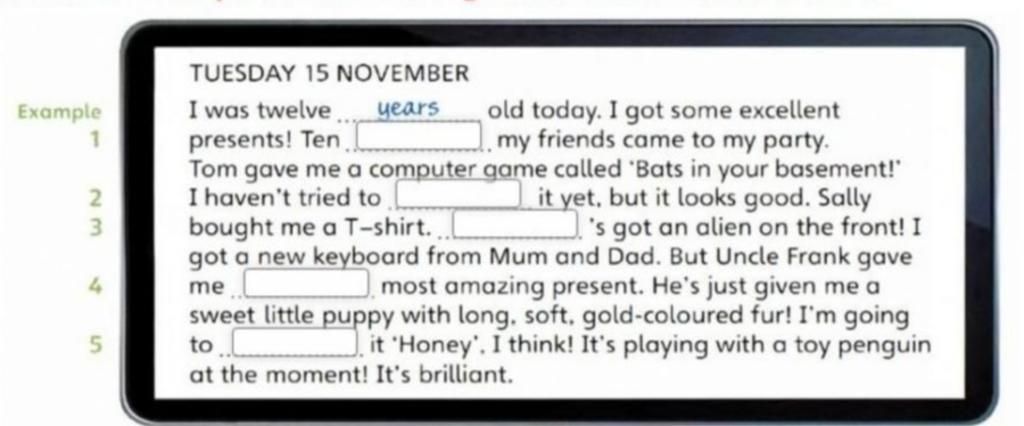 TUESDAY 15 NOVEMBER
Example I was twelve years old today. I got some excellent
1 presents! Ten my friends came to my party.
Tom gave me a computer game called 'Bats in your basement!'
2 I haven't tried to it yet, but it looks good. Sally
3 bought me a T-shirt. 's got an alien on the front! I
got a new keyboard from Mum and Dad. But Uncle Frank gave
4 me most amazing present. He's just given me a
sweet little puppy with long, soft, gold-coloured fur! I'm going
5 to it 'Honey', I think! It's playing with a toy penguin
at the moment! It's brilliant.